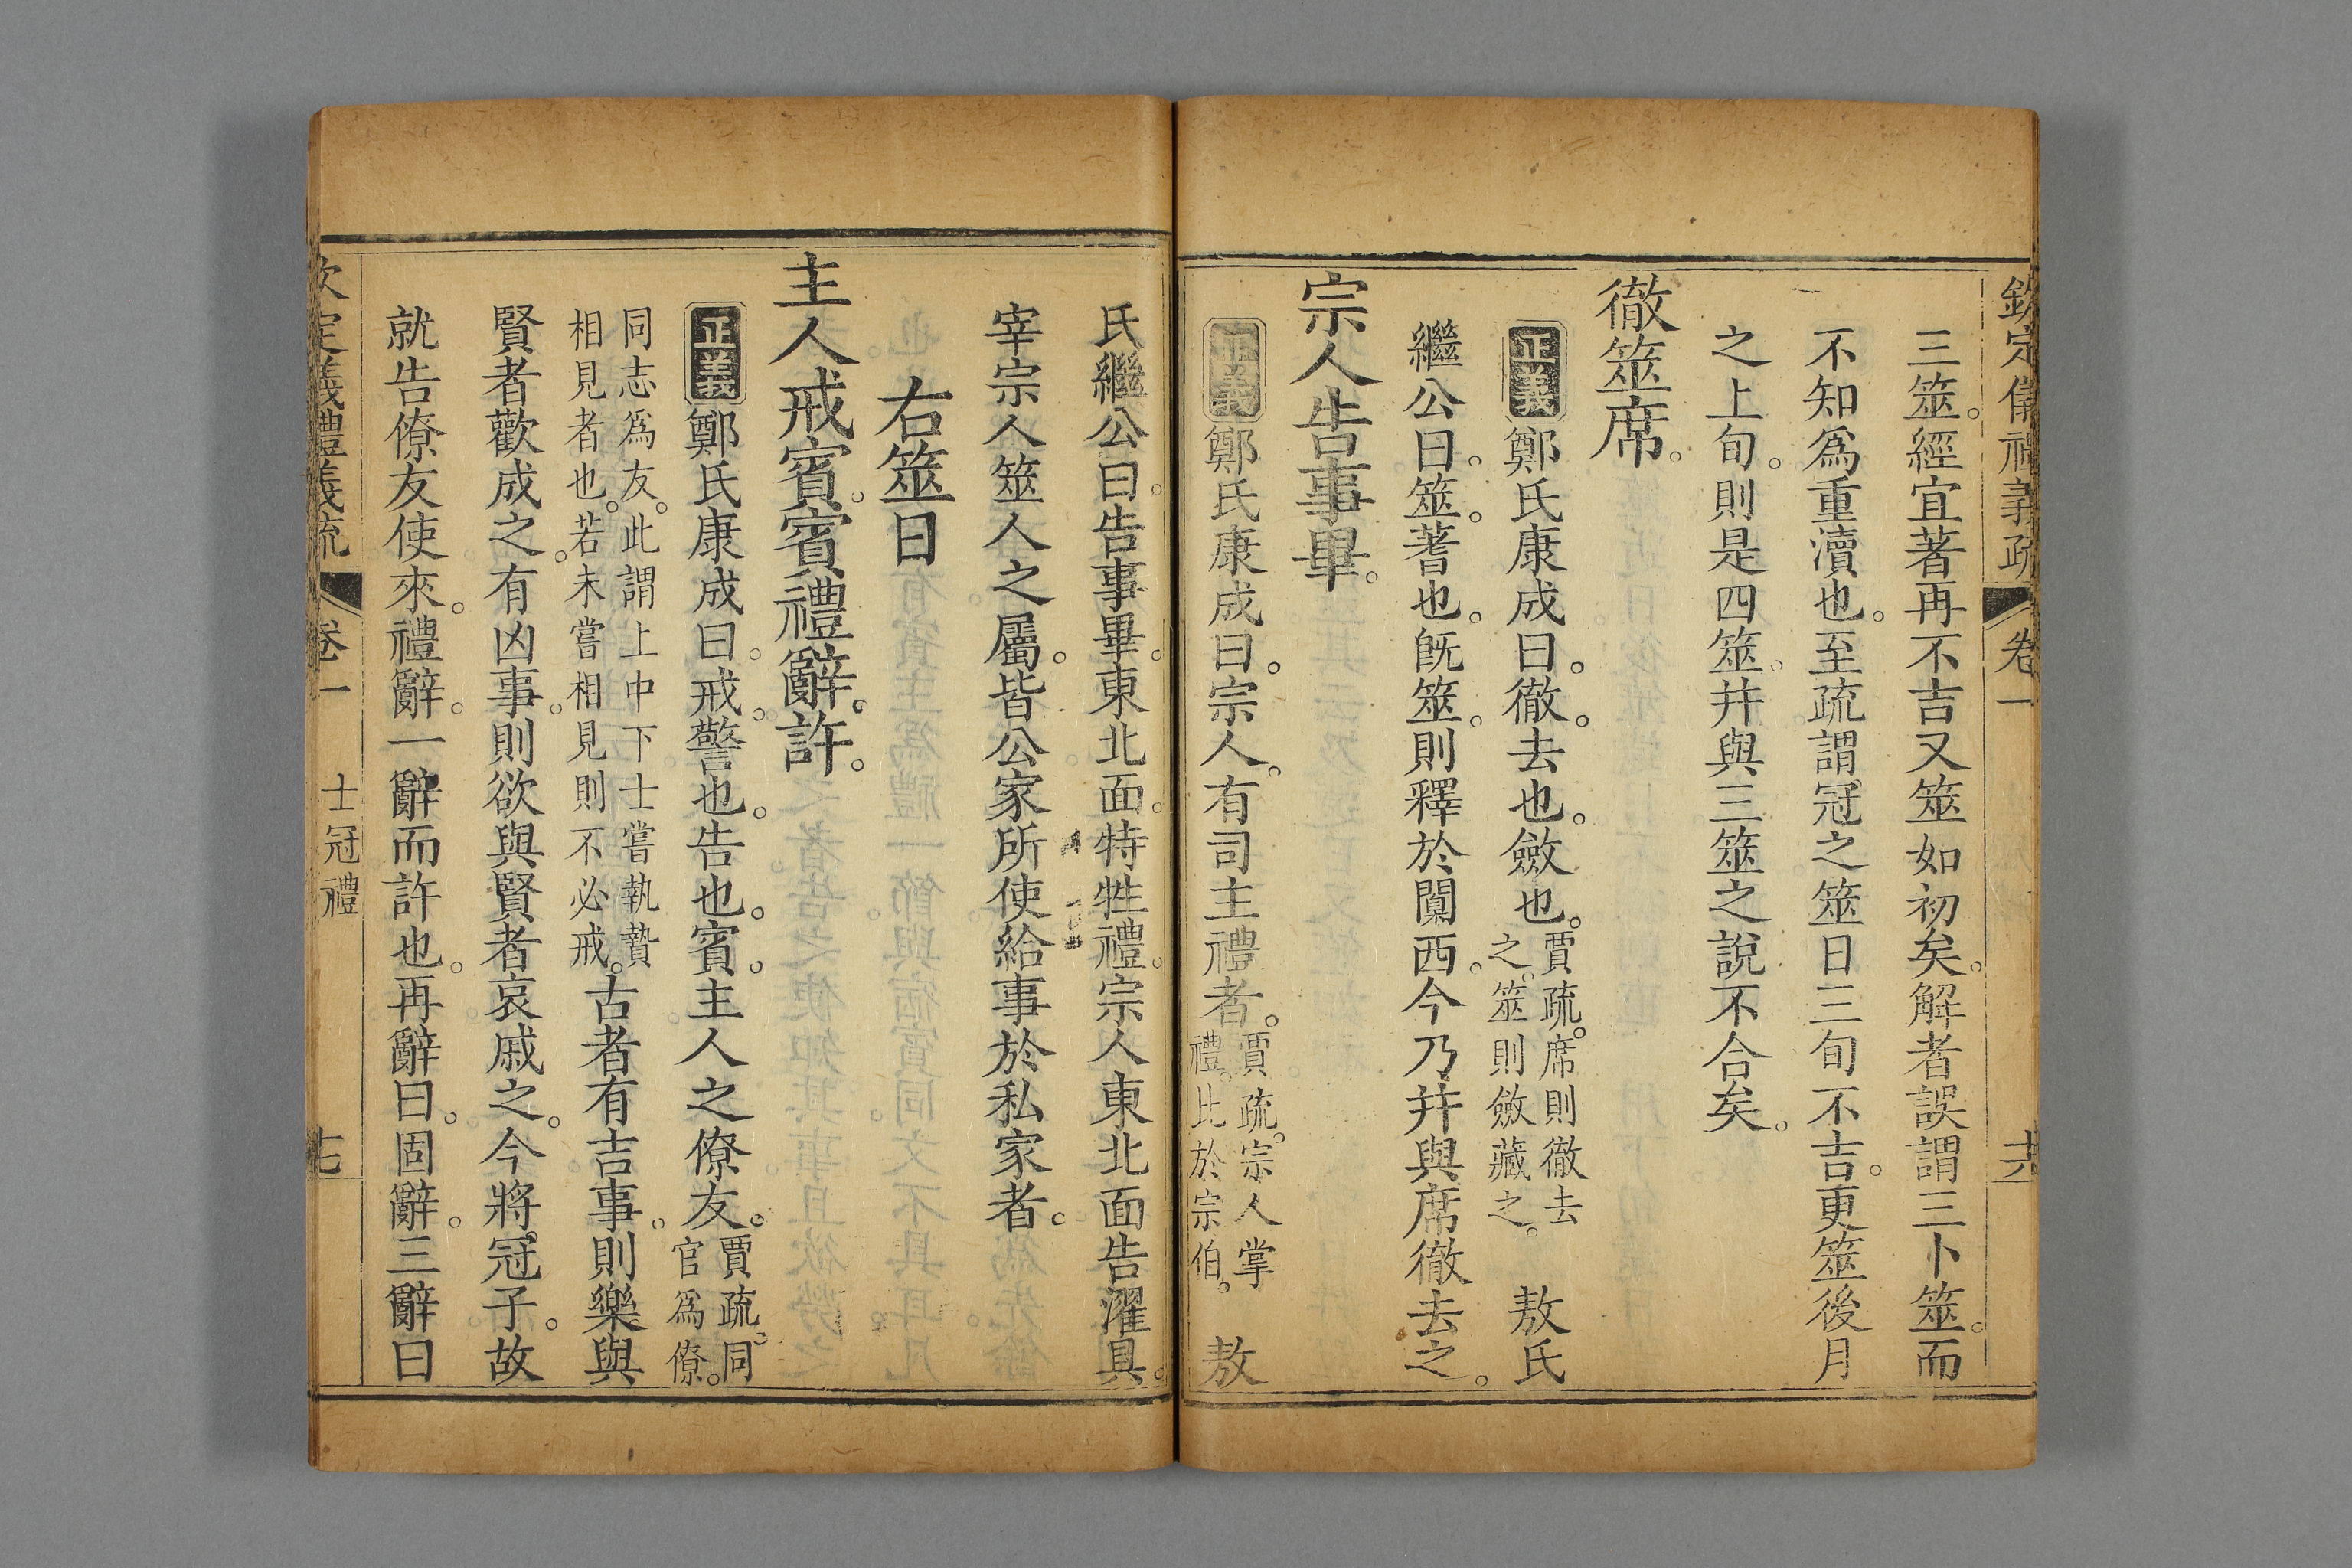 欽定儀禮義疏 卷一 十六
三筮。經宜著再不吉又筮如初矣。解者誤謂三卜筮。而
不知爲重瀆也。至疏謂冠之筮日三旬不吉。更筮後月
之上旬。則是四筮。幷與三筮之說不合矣。
徹筮席。
正義鄭氏康成曰。徹。去也。斂也。賈疏。席則徹去之。筮則斂藏之。 敖氏
繼公曰。筮。蓍也。旣筮。則釋於闑西。今乃幷與席徹去之。
宗人告事畢。
正義鄭氏康成曰。宗人。有司主禮者。賈疏。宗人掌禮。比於宗伯。 敖
氏繼公曰。告事畢。東北面。特牲禮。宗人東北面告濯具。
宰宗人筮人之屬。皆公家所使給事於私家者。
右筮日
主人戒賓。賓禮辭。許。
正義鄭氏康成曰。戒。警也。告也。賓。主人之僚友。賈疏。同官爲僚。
同志爲友。此謂上中下士嘗執贄相見者也。若未嘗相見則不必戒。古者有吉事。則樂與
賢者歡成之。有凶事。則欲與賢者哀戚之。今將冠子。故
就告僚友使來。禮辭。一辭而許也。再辭曰。固辭。三辭曰
欽定義禮義疏 卷一 士冠禮 十七